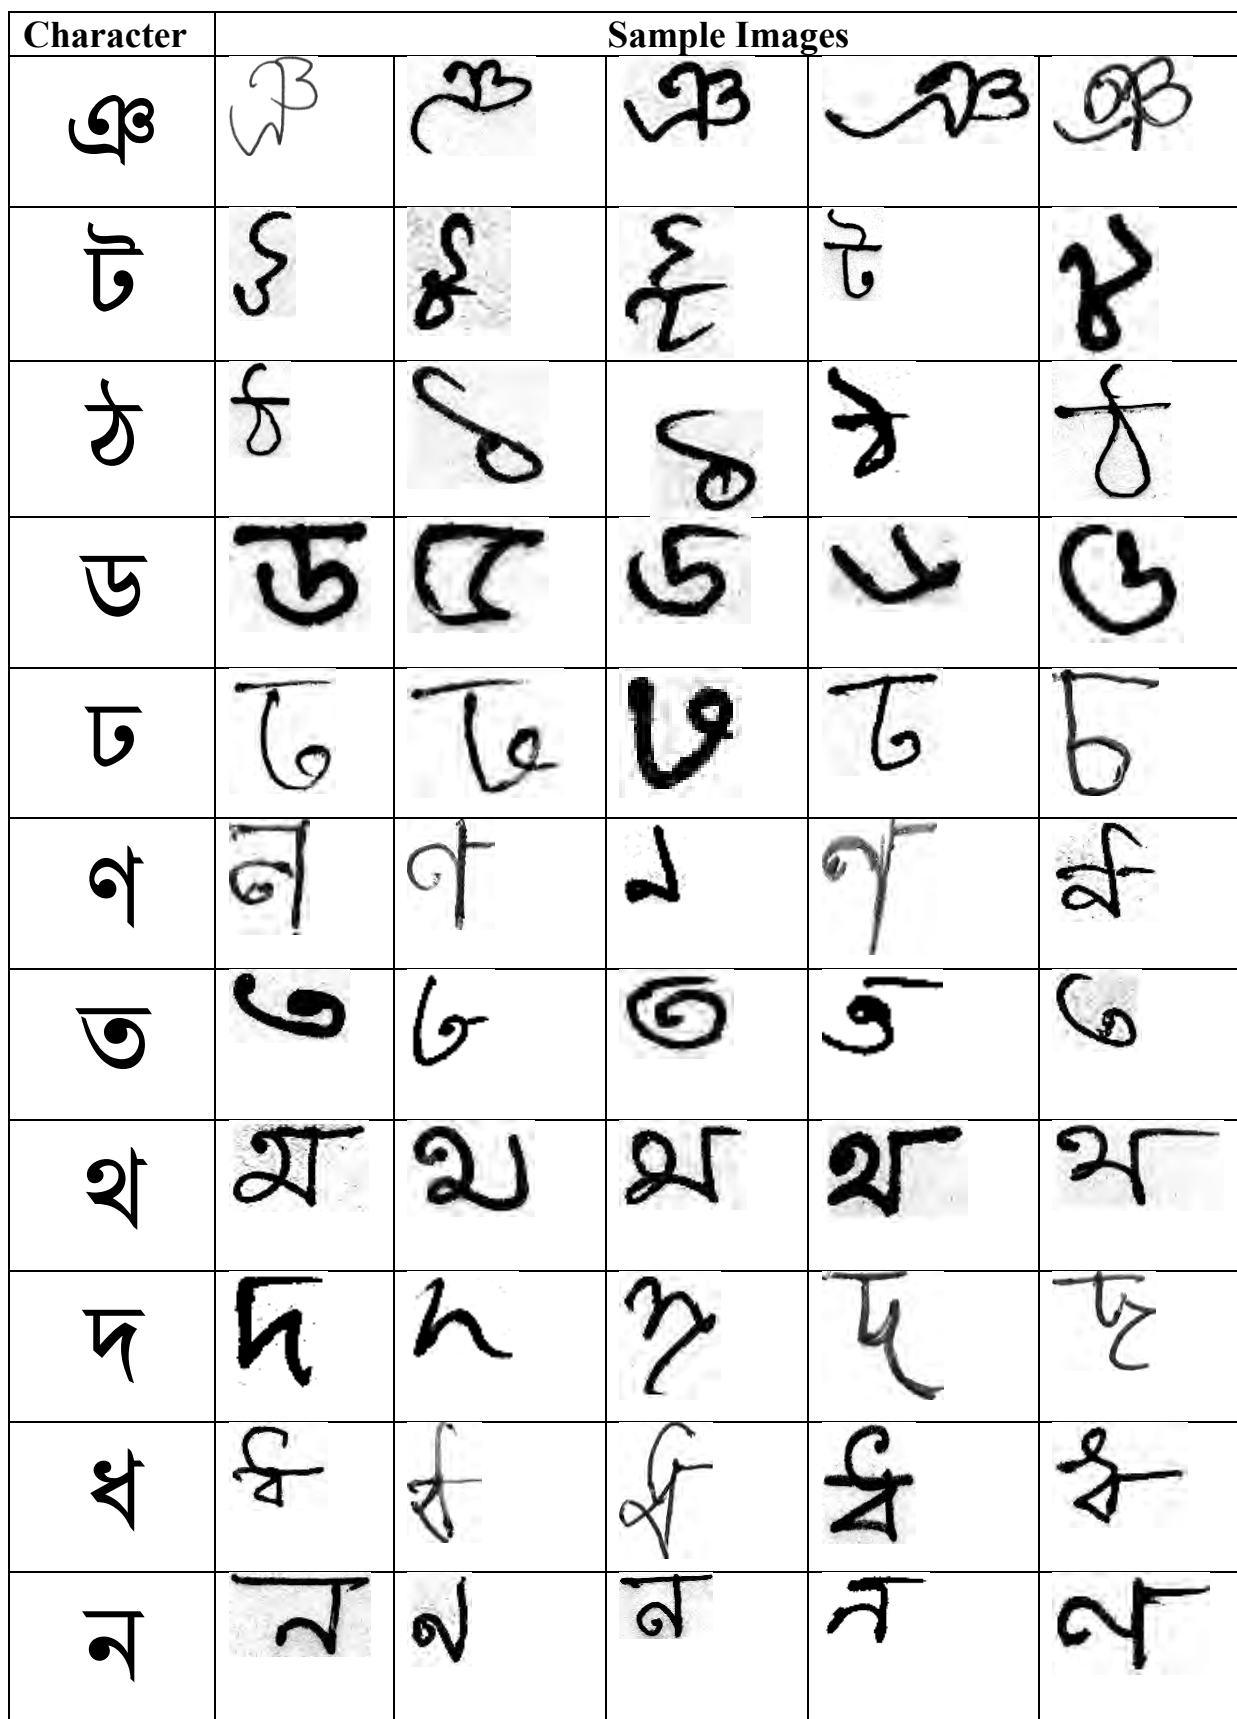 Character Sample Images
ঞ ঞ ঞ ঞ ঞ ঞ
ট ট ট ট ট ট
ঠ ঠ ঠ ঠ ঠ ঠ
ড ড ড ড ড ড
ঢ ঢ ঢ ঢ ঢ ঢ
ণ ণ ণ ণ ণ ণ
ত ত ত ত ত ত
থ থ থ থ থ থ
দ দ দ দ দ দ
ধ ধ ধ ধ ধ ধ
ন ন ন ন ন ন